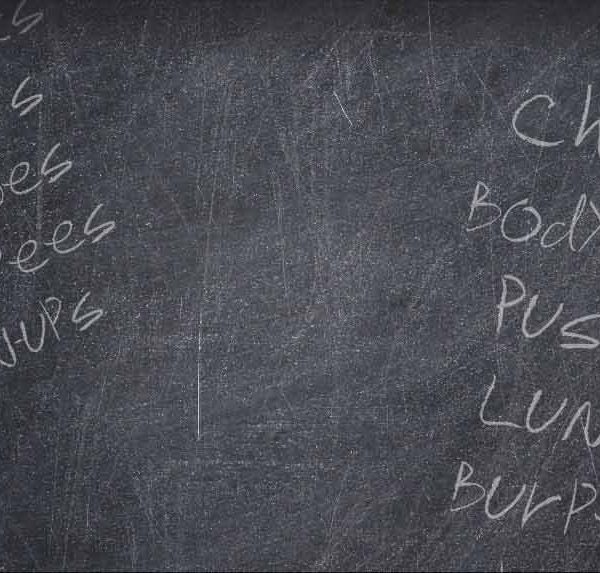 es
s
oes
pees
N-UPS
CH
BODY
PUS
LUN
BURP